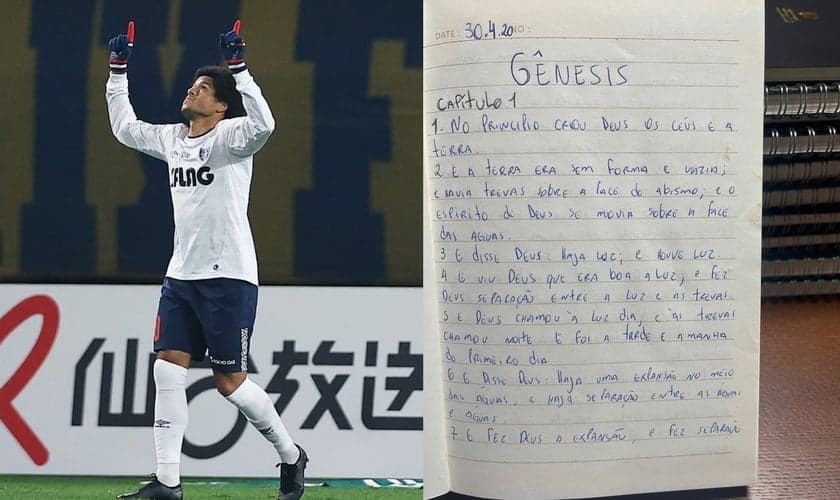 XFLAG
仙台放送
DATE: 30.4.20
GÊNESIS
CAPÍTULO 1
1. NO PRINCÍPIO CRIOU DEUS OS CÉUS E A
TERRA.
2. E A TERRA ERA SEM FORMA E VAZIA;
E HAVIA TREVAS SOBRE A FACE DO ABISMO; E O
ESPÍRITO DE DEUS SE MOVIA SOBRE A FACE
DAS ÁGUAS.
3 E DISSE DEUS: HAJA LUZ; E HOUVE LUZ.
4 E VIU DEUS QUE ERA BOA A LUZ; E FEZ
DEUS SEPARAÇÃO ENTRE A LUZ E AS TREVAS.
5 E DEUS CHAMOU À LUZ DIA, E ÀS TREVAS
CHAMOU NOITE. E FOI A TARDE E A MANHÃ
DO PRIMEIRO DIA
6 E DISSE DEUS: HAJA UMA EXPANSÃO NO MEIO
DAS ÁGUAS, E HAJA SEPARAÇÃO ENTRE AS ÁGUAS
E ÁGUAS.
7 E FEZ DEUS A EXPANSÃO, E FEZ SEPARAÇÃO